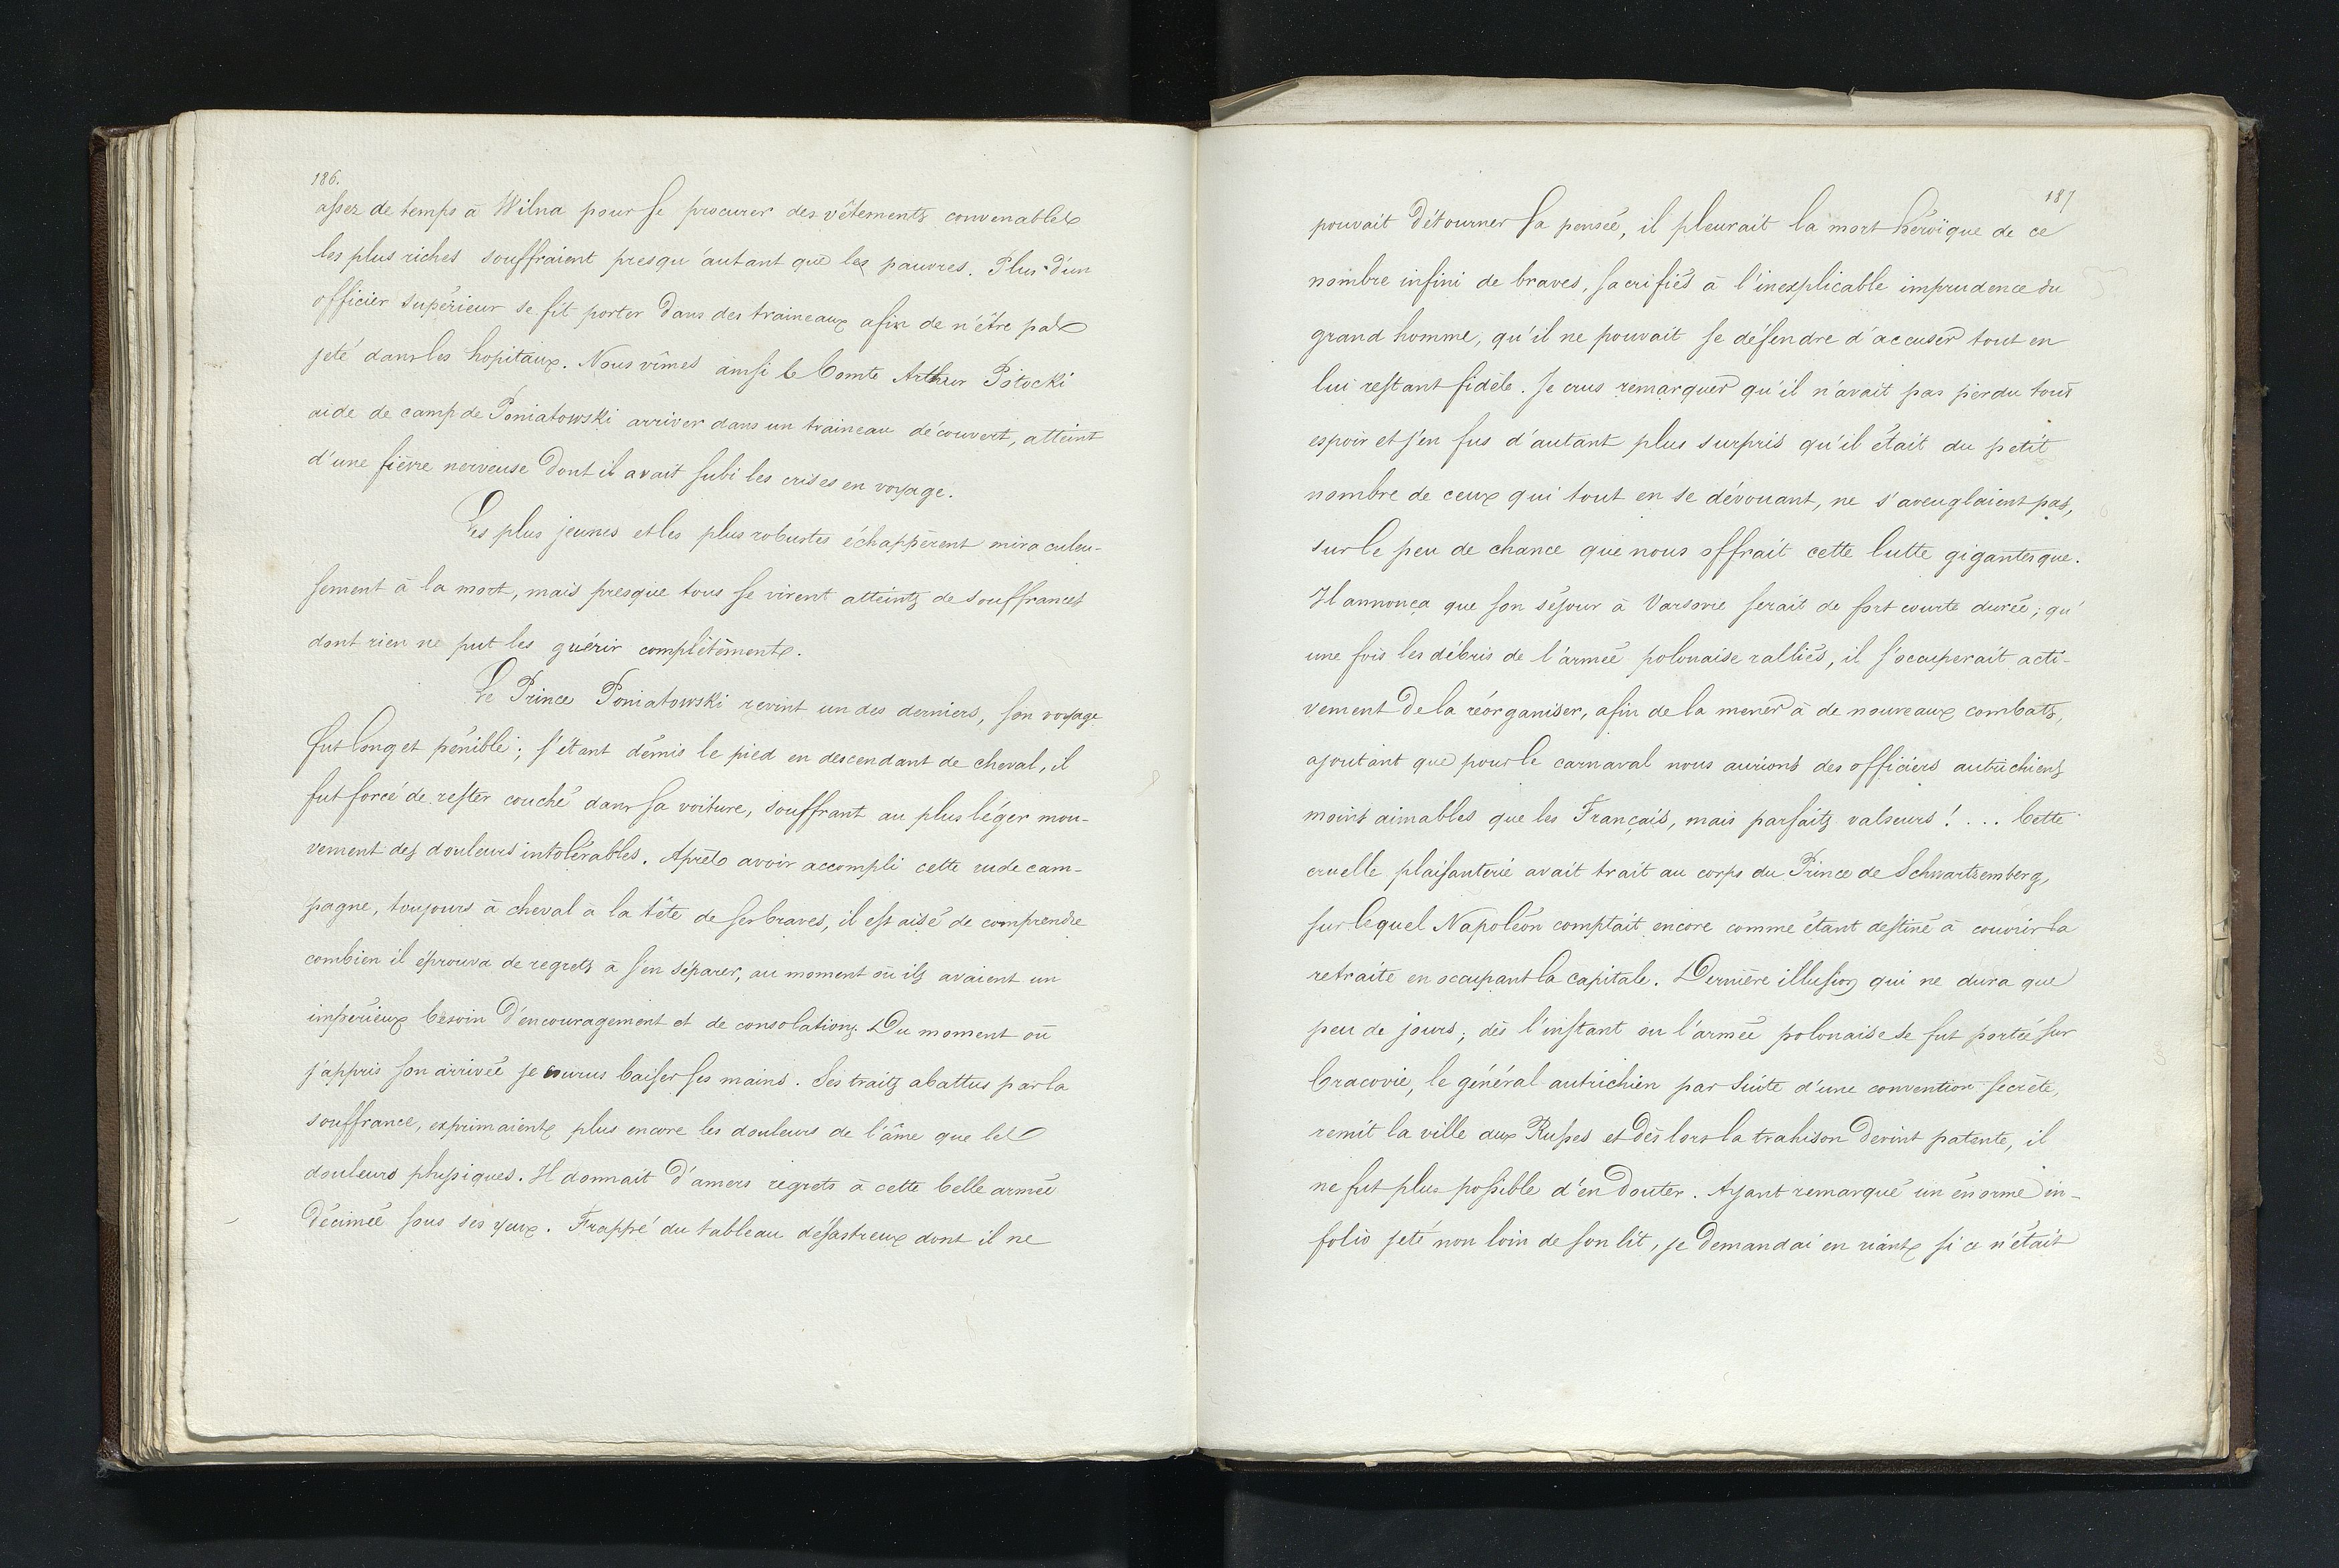 186.
assez de temps à Wilna pour se procurer des vêtements convenables
les plus riches souffraient presqu'autant que les pauvres. Plus d'un
officier supérieur se fit porter dans des traineaux afin de n'être pas
jeté dans les hopitaux. Nous vîmes ainsi le Comte Arthur Potocki
aide de camp de Poniatowski arriver dans un traineau découvert, atteint
d'une fièvre nerveuse dont il avait subi les crises en voyage.
Les plus jeunes et les plus robustes échappèrent miraculeu-
sement à la mort, mais presque tous se virent atteints de souffrances
dont rien ne put les guérir complètement.
Le Prince Poniatowski revint un des derniers, son voyage
fut long et pénible; s'étant démis le pied en descendant de cheval, il
fut forcé de rester couché dans sa voiture, souffrant au plus léger mou-
vement des douleurs intolérables. Après avoir accompli cette rude cam-
pagne, toujours à cheval à la tête de ses braves, il est aisé de comprendre
combien il éprouva de regrets à s'en séparer, au moment où ils avaient un
impérieux besoin d'encouragement et de consolations. Du moment où
j'appris son arrivée je courus baiser ses mains. Ses traits abattus par la
souffrance, exprimaient plus encore les douleurs de l'âme que les
douleurs physiques. Il donnait d'amers regrets à cette belle armée
décimée sous ses yeux. Frappé du tableau désastreux dont il ne
187
pouvait détourner sa pensée, il pleurait la mort héroïque de ce
nombre infini de braves, sacrifiés à l'inexplicable imprudence du
grand homme, qu'il ne pouvait se défendre d'accuser tout en
lui restant fidèle. Je crus remarquer qu'il n'avait pas perdu tout
espoir et j'en fus d'autant plus surpris qu'il était du petit
nombre de ceux qui tout en se dévouant, ne s'aveuglaient pas,
sur le peu de chance que nous offrait cette lutte gigantesque.
Il annonça que son séjour à Varsovie serait de fort courte durée; qu'
une fois les débris de l'armée polonaise ralliés, il s'occuperait acti-
vement de la réorganiser, afin de la mener à de nouveaux combats,
ajoutant que pour le carnaval nous aurions des officiers autrichiens
moins aimables que les Français, mais parfaits valseurs! ... Cette
cruelle plaisanterie avait trait au corps du Prince de Schwartzemberg,
sur lequel Napoléon comptait encore comme étant destiné à couvrir la
retraite en occupant la capitale. Dernière illusion qui ne dura que
peu de jours; dès l'instant ou l'armée polonaise se fut portée sur
Cracovie, le général autrichien par suite d'une convention secrète,
remit la ville aux Russes et dès lors la trahison devint patente, il
ne fut plus possible d'en douter. Ayant remarqué un énorme in-
folio jeté non loin de son lit, je demandai en riant si ce n'était